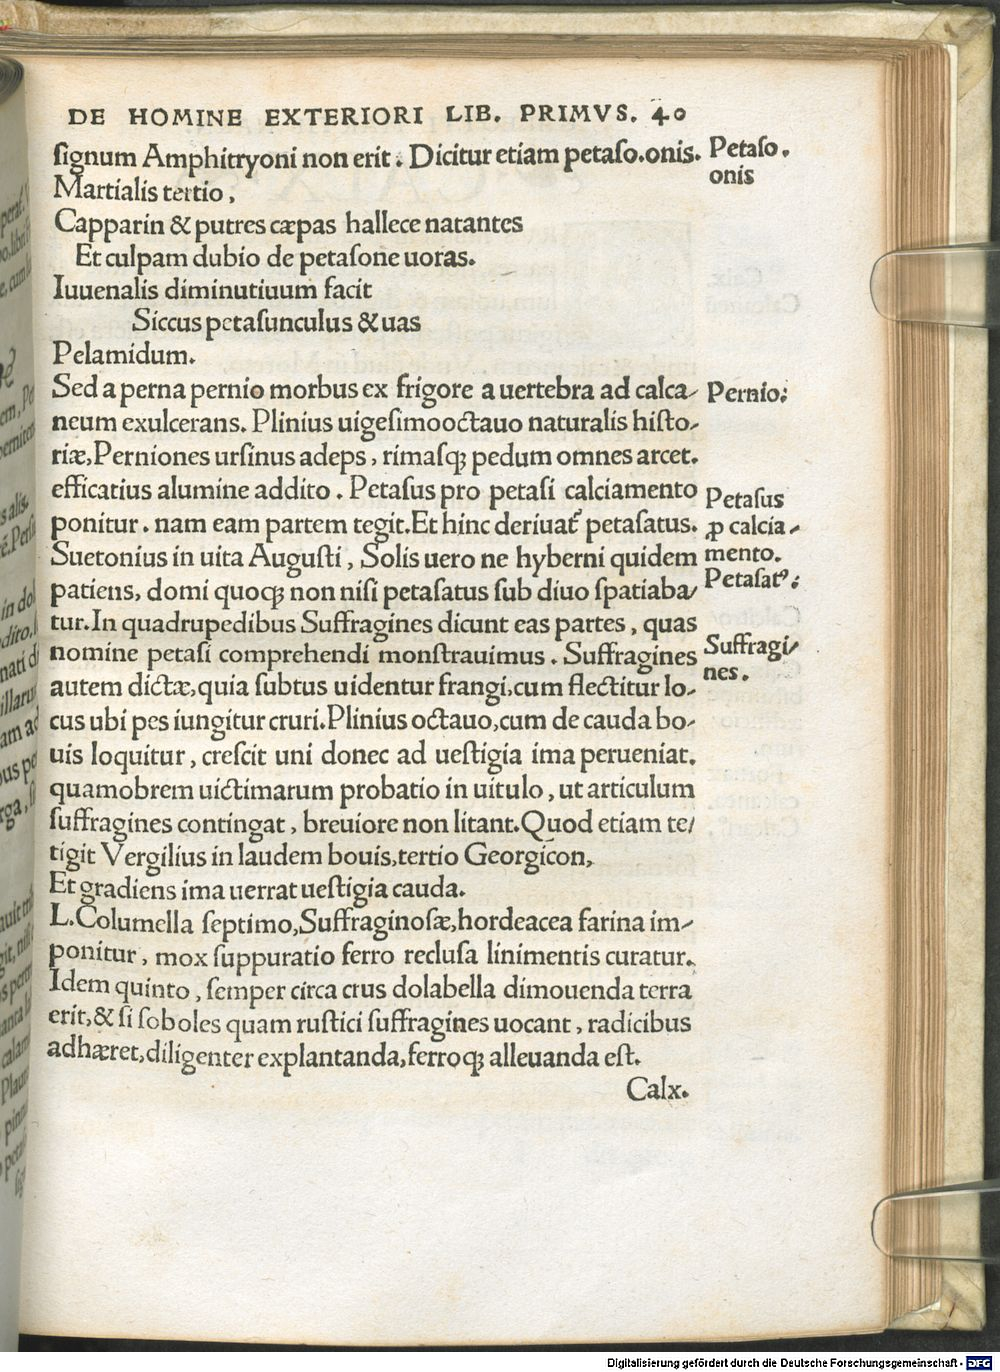 DE HOMINE EXTERIORI LIB. PRIMVS. 40
ſignum Amphitryoni non erit. Dicitur etiam petaſo.onis.
Petaſo.
onis
Martialis tertio,
Capparin & putres cæpas hallece natantes
Et culpam dubio de petaſone uoras.
Iuuenalis diminutiuum facit
Siccus petaſunculus & uas
Pelamidum.
Sed a perna pernio morbus ex frigore a uertebra ad calca-
Pernio:
neum exulcerans. Plinius uigeſimooctauo naturalis hiſto-
riæ, Perniones urſinus adeps, rimaſqꝫ pedum omnes arcet.
efficatius alumine addito. Petaſus pro petaſi calciamento
Petaſus
ponitur. nam eam partem tegit. Et hinc deriuat᷑ petaſatus.
ꝓ calcia-
Suetonius in uita Auguſti, Solis uero ne hyberni quidem
mento.
patiens, domi quoqꝫ non niſi petaſatus ſub diuo ſpatiaba-
Petaſatꝰ:
tur. In quadrupedibus Suffragines dicunt eas partes, quas
nomine petaſi comprehendi monſtrauimus. Suffragines
Suffragi-
nes.
autem dictæ, quia ſubtus uidentur frangi, cum flectitur lo-
cus ubi pes iungitur cruri. Plinius octauo, cum de cauda bo-
uis loquitur, creſcit uni donec ad ueſtigia ima perueniat.
quamobrem uictimarum probatio in uitulo, ut articulum
ſuffragines contingat, breuiore non litant. Quod etiam te/
tigit Vergilius in laudem bouis, tertio Georgicon,
Et gradiens ima uerrat ueſtigia cauda.
L. Columella ſeptimo, Suffraginoſæ, hordeacea farina im-
ponitur, mox ſuppuratio ferro recluſa linimentis curatur.
Idem quinto, ſemper circa crus dolabella dimouenda terra
erit, & ſi ſoboles quam ruſtici ſuffragines uocant, radicibus
adhæret, diligenter explantanda, ferroqꝫ alleuanda eſt.
Calx.
Digitalisierung gefördert durch die Deutsche Forschungsgemeinschaft - DFG